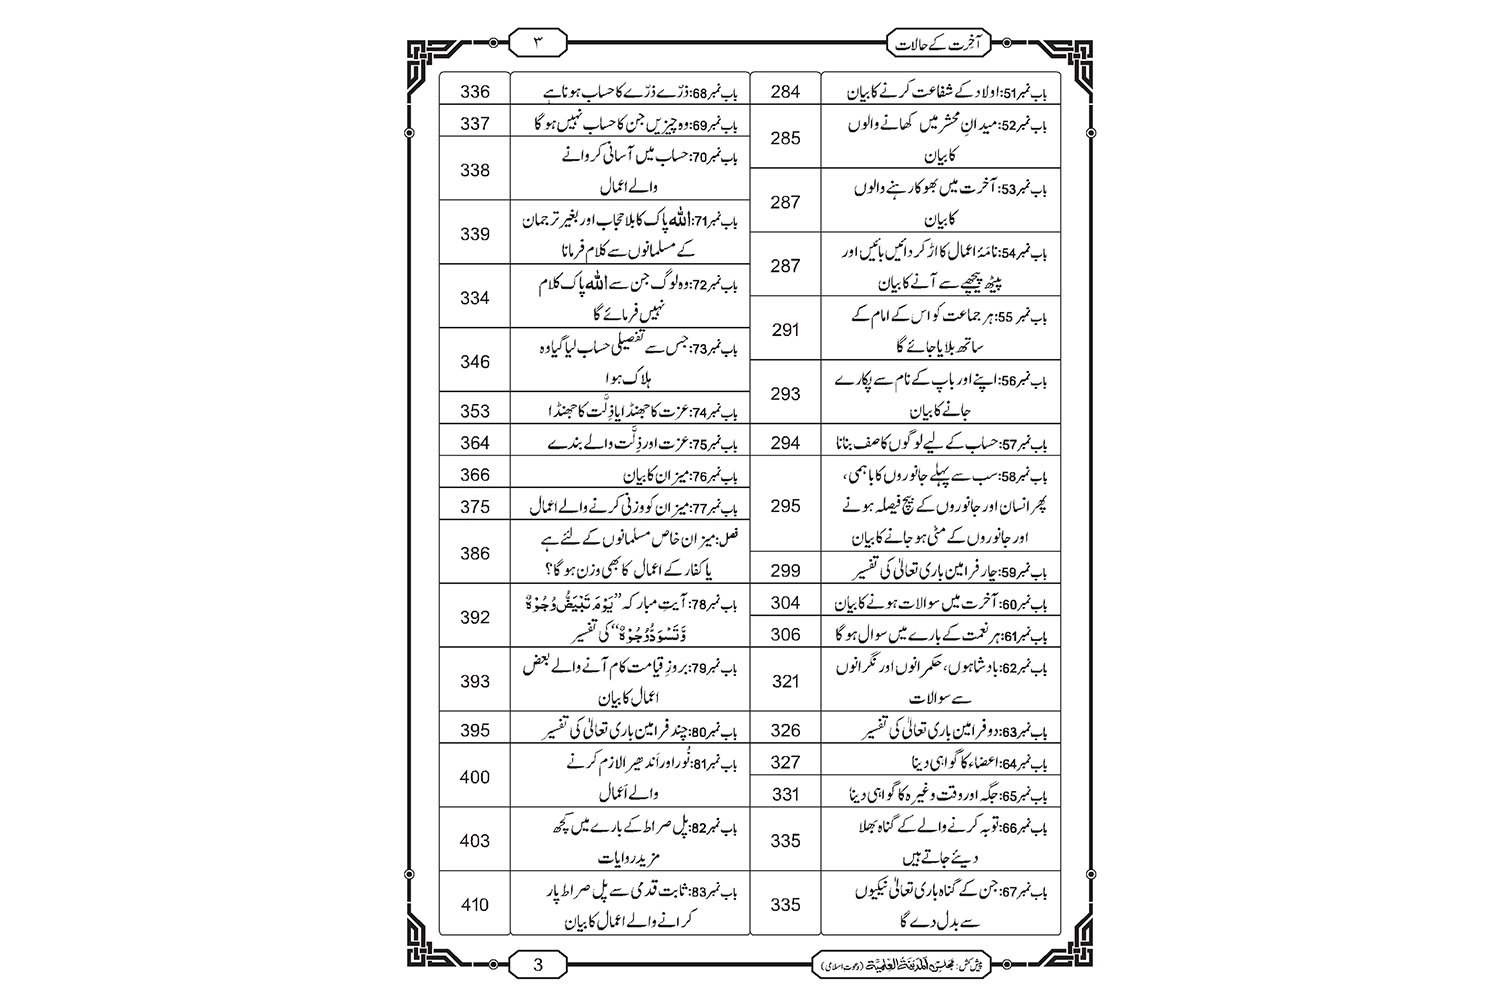 آخرت کے حالات
۳
باب نمبر51: اولاد کے شفاعت کرنے کا بیان 284
باب نمبر52: میدانِ محشر میں کھانے والوں
کا بیان 285
باب نمبر53: آخرت میں بھوکا رہنے والوں
کا بیان 287
باب نمبر54: نامۂ اعمال کا اڑ کر دائیں بائیں اور
پیٹھ پیچھے سے آنے کا بیان 287
باب نمبر 55: ہر جماعت کو اس کے امام کے
ساتھ بلایا جائے گا 291
باب نمبر56: اپنے اور باپ کے نام سے پکارے
جانے کا بیان 293
باب نمبر57: حساب کے لیے لوگوں کا صف بنانا 294
باب نمبر58: سب سے پہلے جانوروں کا باہمی،
پھر انسان اور جانوروں کے بیچ فیصلہ ہونے
اور جانوروں کے مٹی ہو جانے کا بیان 295
باب نمبر59: چار فرامین باری تعالیٰ کی تفسیر 299
باب نمبر60: آخرت میں سوالات ہونے کا بیان 304
باب نمبر61: ہر نعمت کے بارے میں سوال ہو گا 306
باب نمبر62: بادشاہوں، حکمرانوں اور نگرانوں
سے سوالات 321
باب نمبر63: دو فرامین باری تعالیٰ کی تفسیر 326
باب نمبر64: اعضاء کا گواہی دینا 327
باب نمبر65: جگہ اور وقت وغیرہ کا گواہی دینا 331
باب نمبر66: توبہ کرنے والے کے گناہ بھلا
دیئے جاتے ہیں 335
باب نمبر67: جن کے گناہ باری تعالیٰ نیکیوں
سے بدل دے گا 335
باب نمبر68: ذرّے ذرّے کا حساب ہونا ہے 336
باب نمبر69: وہ چیزیں جن کا حساب نہیں ہو گا 337
باب نمبر70: حساب میں آسانی کروانے
والے اعمال 338
باب نمبر71: اللہ پاک کا بلا حجاب اور بغیر ترجمان
کے مسلمانوں سے کلام فرمانا 339
باب نمبر72: وہ لوگ جن سے اللہ پاک کلام
نہیں فرمائے گا 334
باب نمبر73: جس سے تفصیلی حساب لیا گیا وہ
ہلاک ہوا 346
باب نمبر74: عزت کا جھنڈا یا ذِلَّت کا جھنڈا 353
باب نمبر75: عزت اور ذِلَّت والے بندے 364
باب نمبر76: میزان کا بیان 366
باب نمبر77: میزان کو وزنی کرنے والے اعمال 375
فصل: میزان خاص مسلمانوں کے لئے ہے
یا کفار کے اعمال کا بھی وزن ہو گا؟ 386
باب نمبر78: آیتِ مبارکہ ”یَوْمَ تَبْیَضُّ وُجُوْهٌ
وَّ تَسْوَدُّ وُجُوْهٌ“ کی تفسیر 392
باب نمبر79: بروزِ قیامت کام آنے والے بعض
اعمال کا بیان 393
باب نمبر80: چند فرامین باری تعالیٰ کی تفسیر 395
باب نمبر81: نُور اور اَندھیرا لازم کرنے
والے اَعمال 400
باب نمبر82: پل صراط کے بارے میں کچھ
مزید روایات 403
باب نمبر83: ثابت قدمی سے پل صراط پار
کرانے والے اعمال کا بیان 410
پیش کش: مجلس المدینۃ العلمیۃ (دعوتِ اسلامی)
3